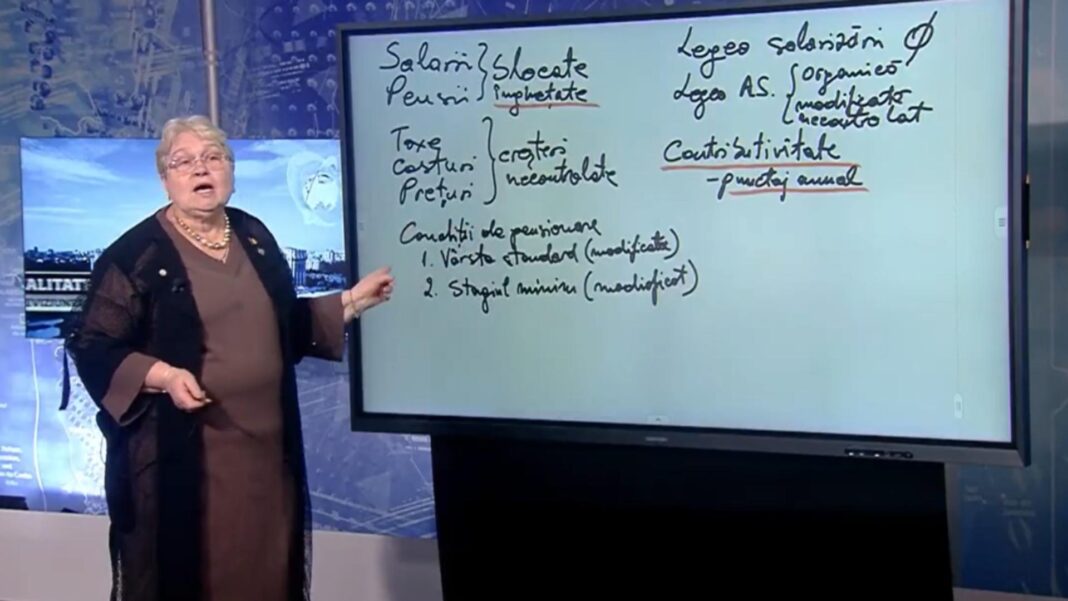 Salarii } blocate
Pensii } înghețate
Taxe
Costuri } creșteri
Prețuri } necontrolate
Condiții de pensionare
1. Vârsta standard (modificată)
2. Stagiul minim (modificat)
Legea salarizării Ø
Legea AS. { organică
{ modificată
necontrolat
Contributivitate
- punctaj anual
ALITATE